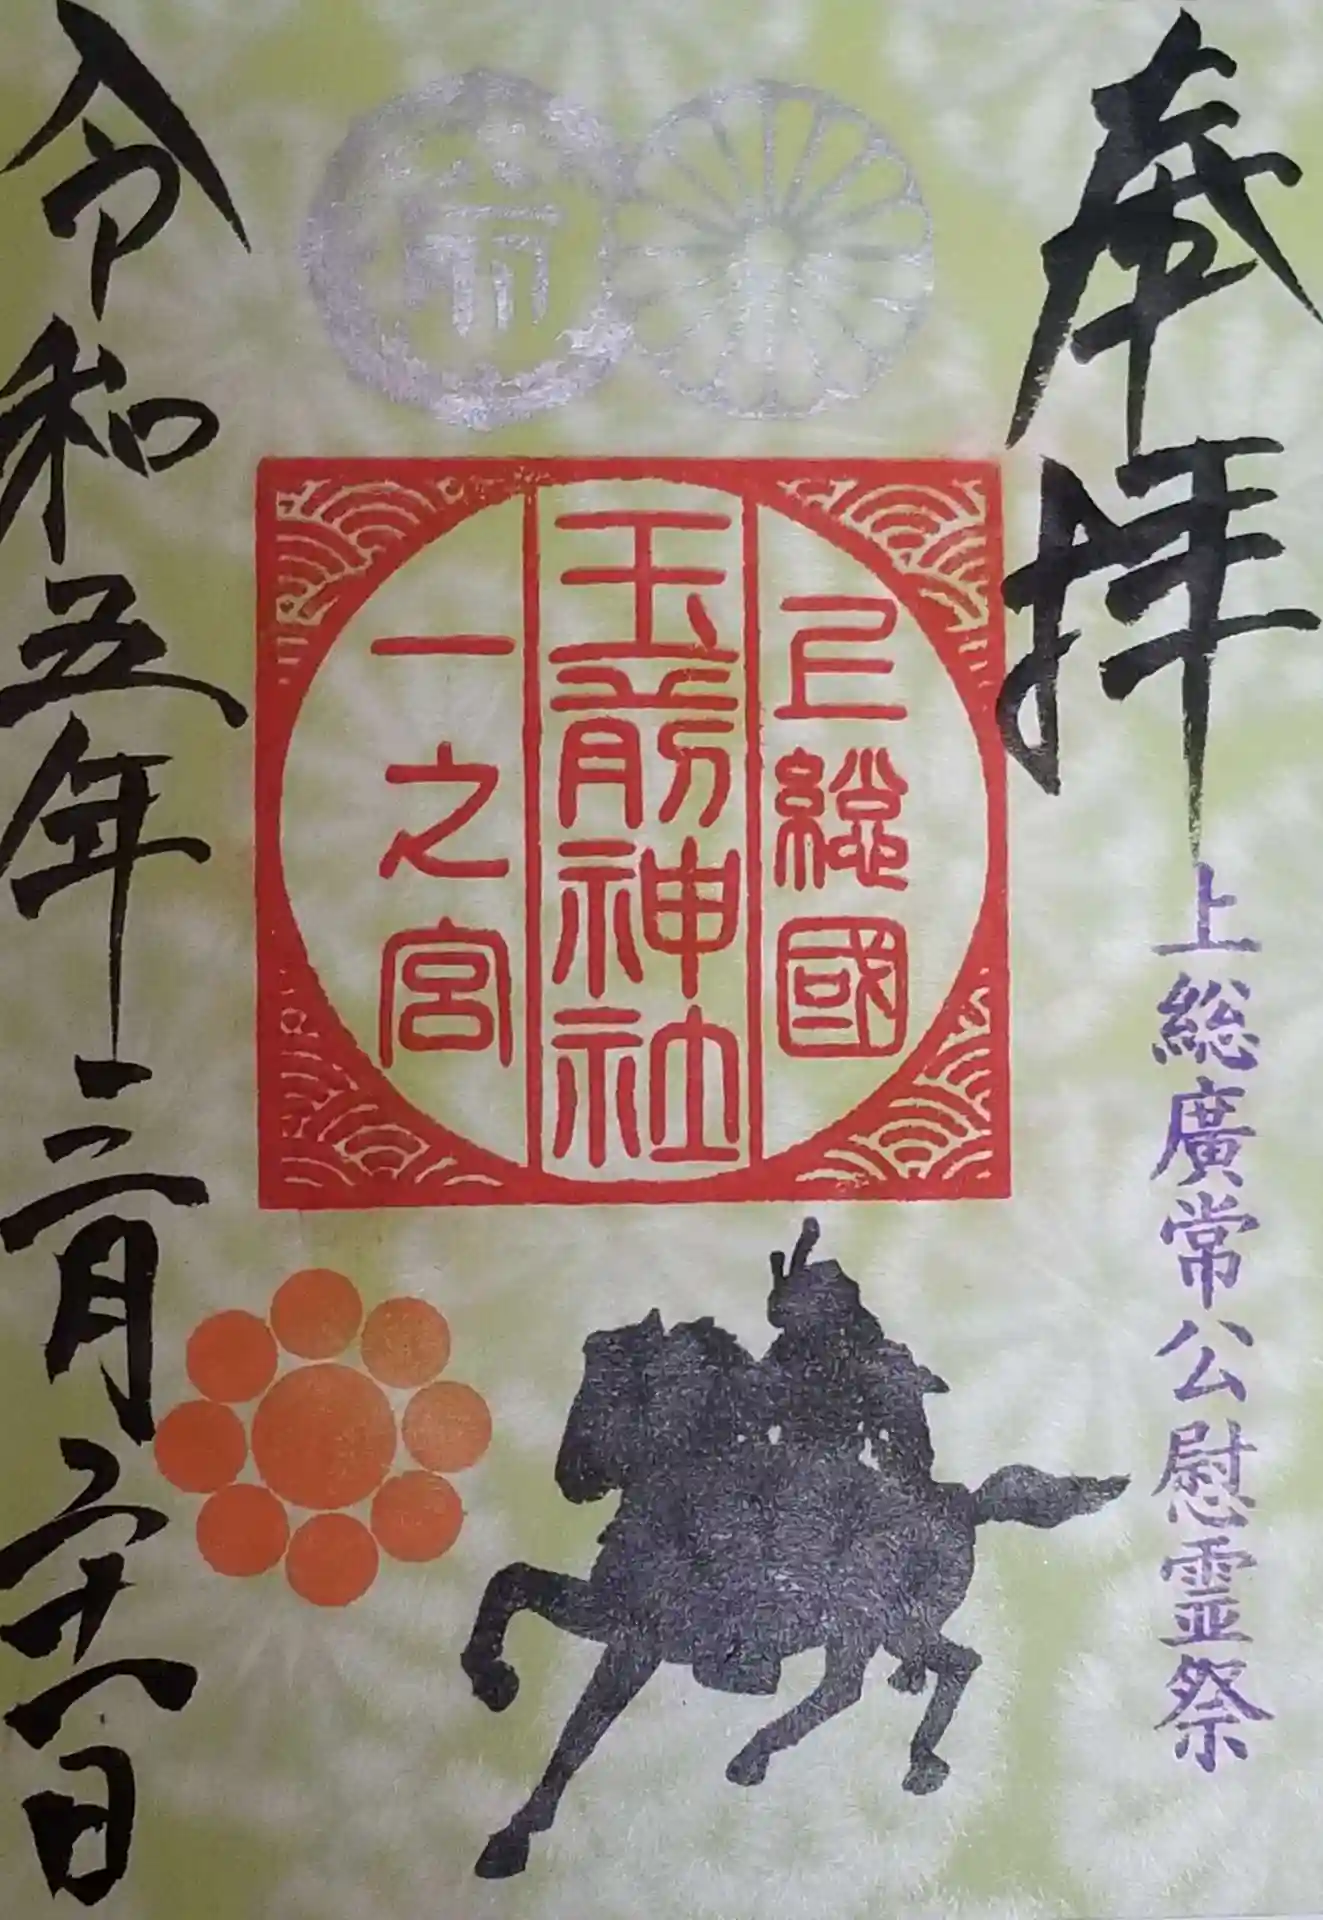 奉拝
上総廣常公慰霊祭
上総國
玉前神社
一之宮
令和五年三月二十六日